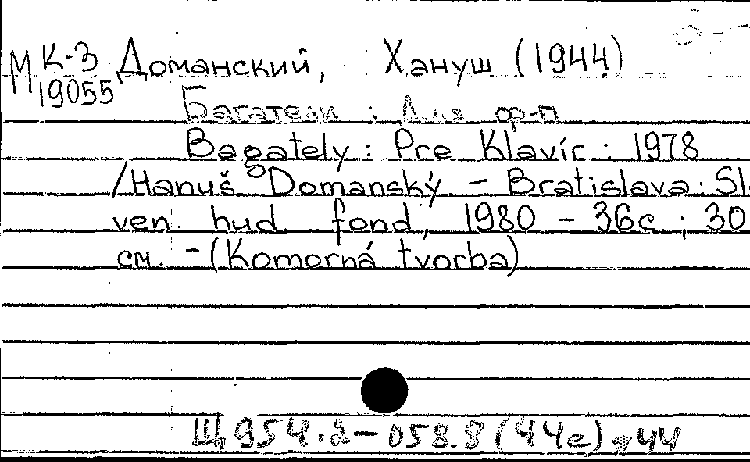 М К-3 Доманский, Хануш (1944)
19055
Багатели : Для ф-п
Bagately : Pre Klavír : 1978
/Hanuš Domanský - Bratislava : Slo
ven. hud. fond, 1980 - 36с ; 30
см. - (Komorná tvorba)
Щ954.2-058.8(44е)я44